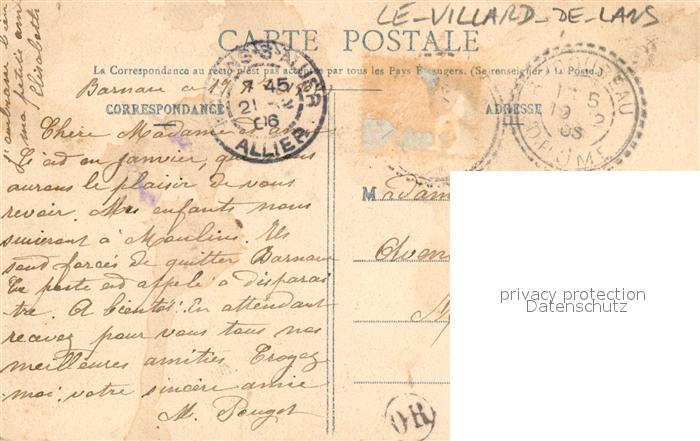 LE-VILLARD-DE-LANS
CARTE POSTALE
La Correspondance au recto n'est pas acceptée par tous les Pays Étrangers. (Se renseigner à la Poste.)
CORRESPONDANCE
ADRESSE
J'embrasse bien
ma petite amie
Elisabeth
Barnave
Chère Madame
en janvier, que nous
aurons le plaisir de vous
revoir. Mes enfants nous
suivront à Moulins. Ils
sont forcés de quitter Barnave
poste est appelé à disparaî
tre. A bientôt! En attendant
recevez pour vous tous nos
meilleures amitiés Croyez
moi votre sincère amie
M. Pouget
7 45
21 12
06
ALLIER
19
DROME
Madam
Aven
M
OR
privacy protection
Datenschutz